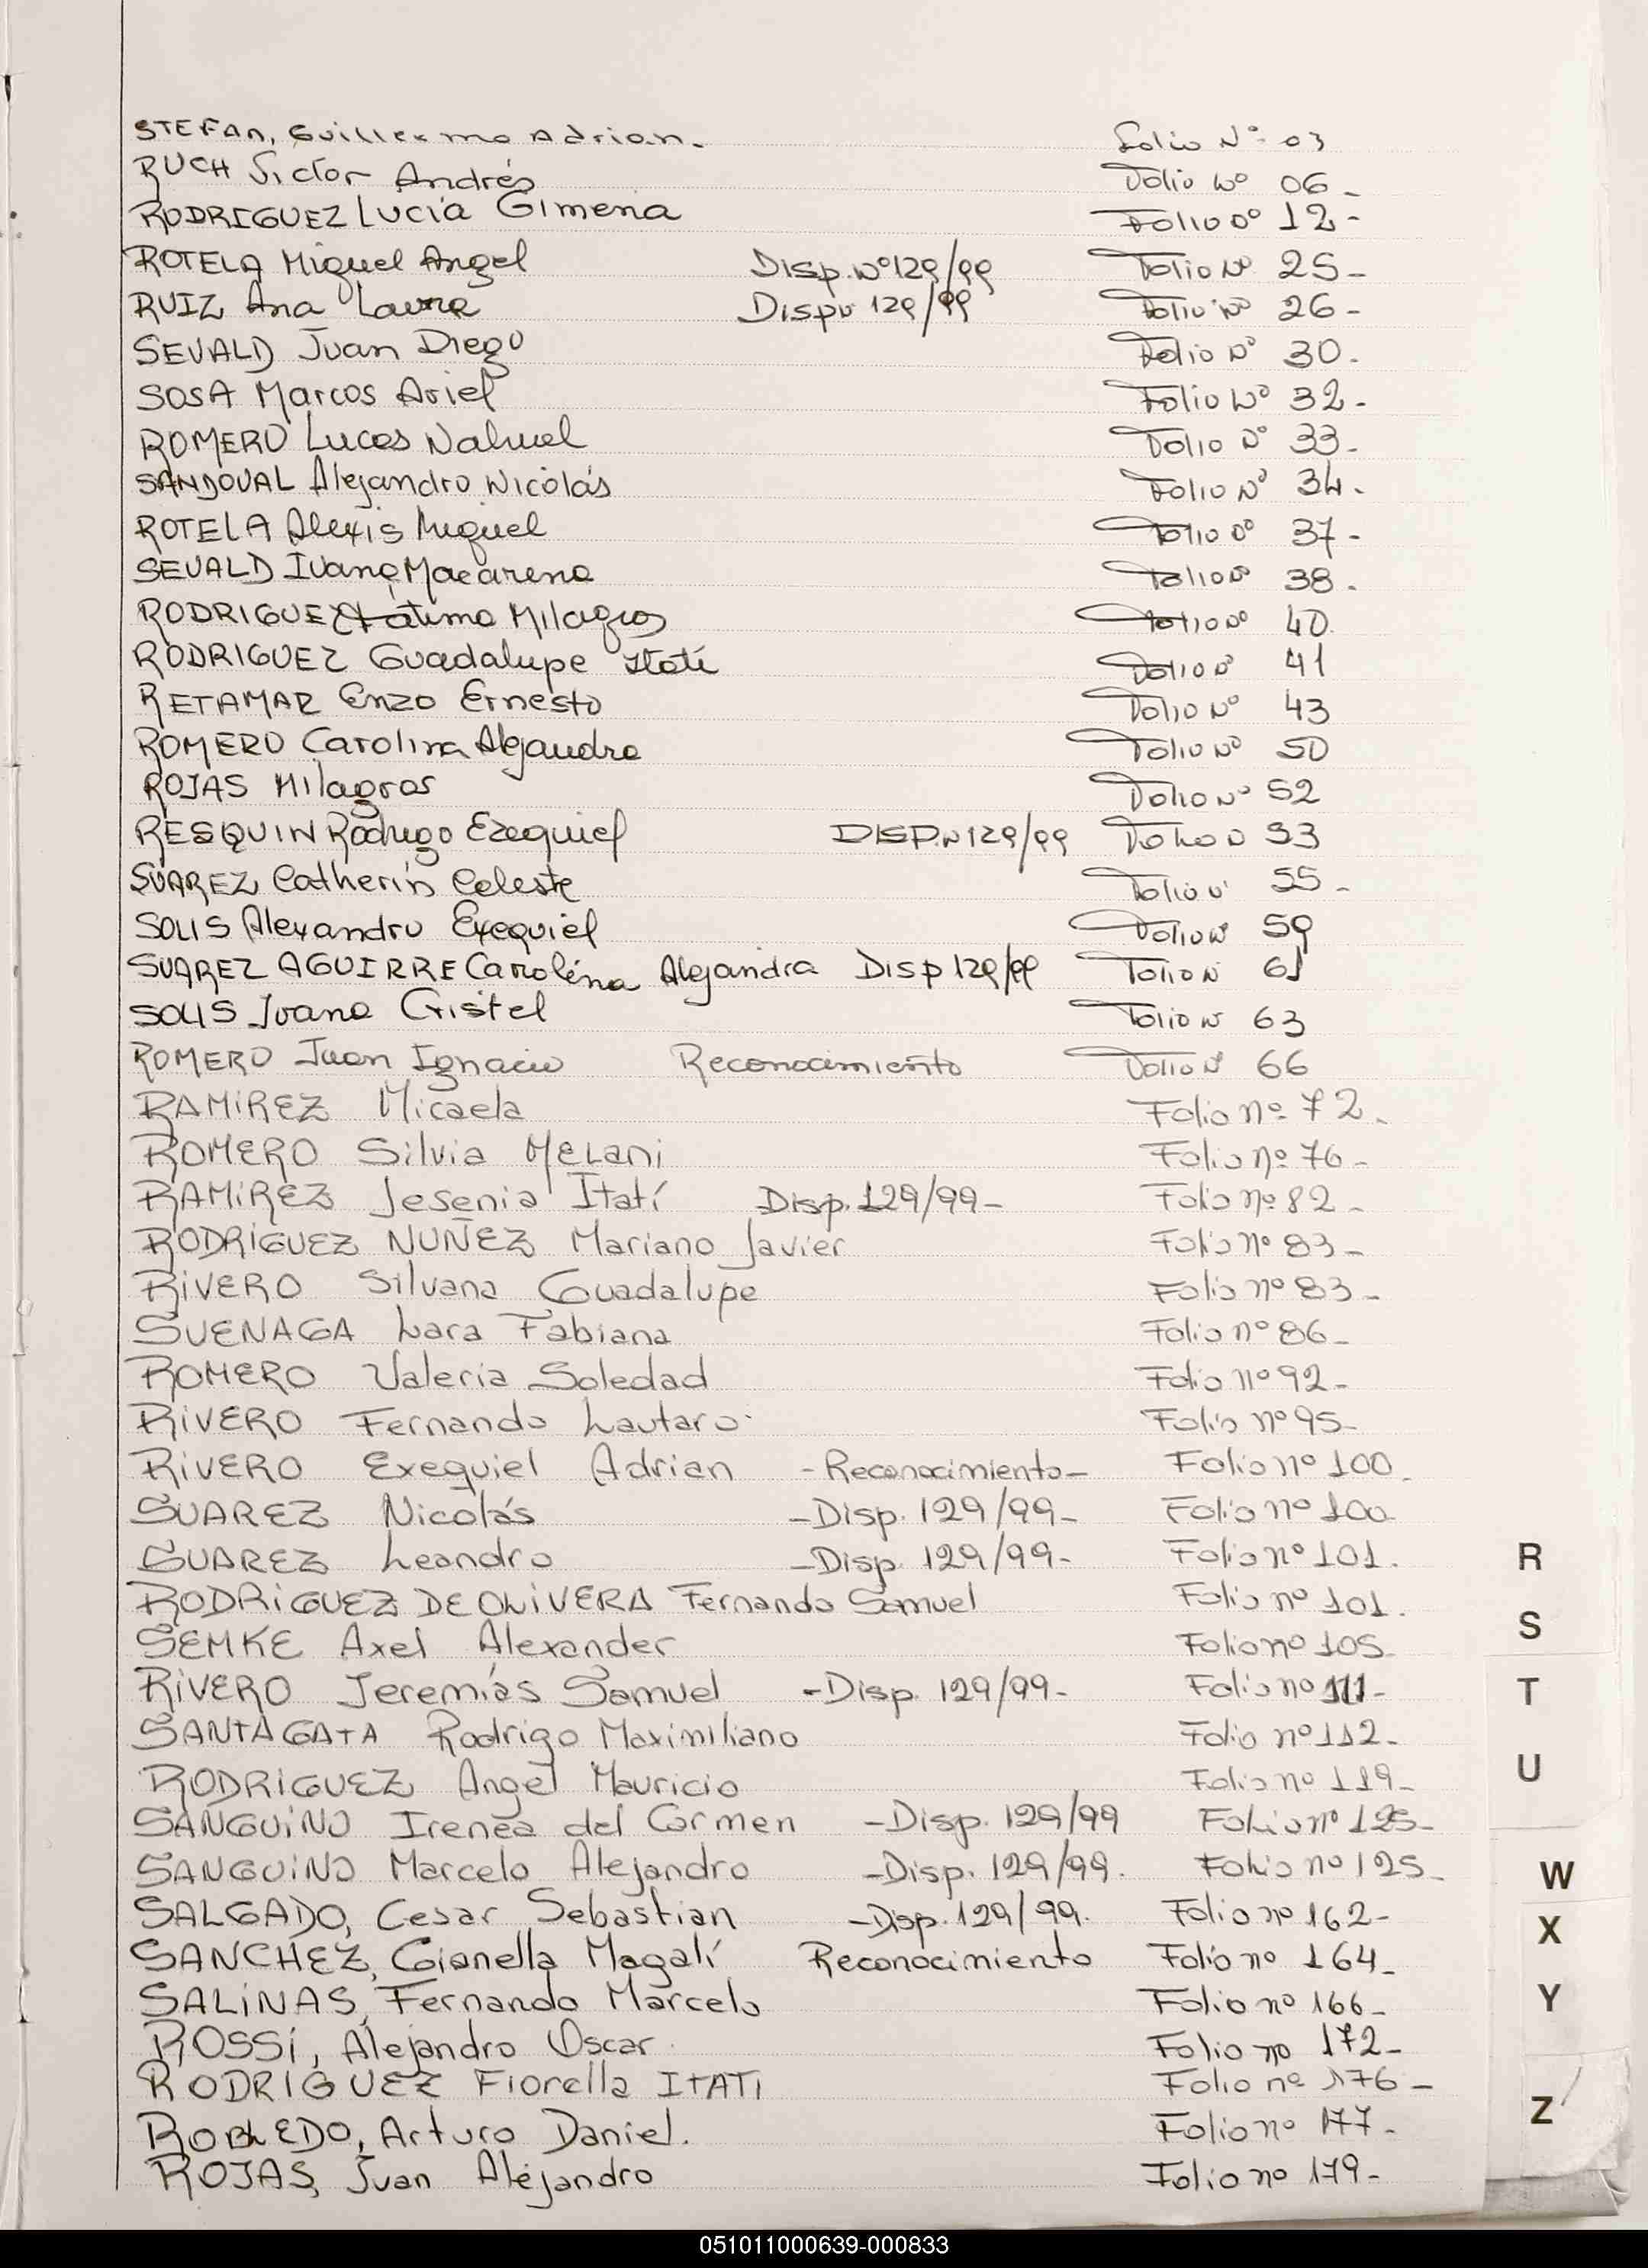 STEFAN, Guillermo Adrian. Folio Nº 03
RUCH Victor Andrés Folio Nº 06-
RODRIGUEZ Lucia Gimena Folio Nº 12-
ROTELA Miguel Angel Disp. Nº 129/99 Folio Nº 25-
RUIZ Ana Laura Dispo 129/99 Folio Nº 26-
SEWALD Juan Diego Folio Nº 30.
SOSA Marcos Ariel Folio Nº 32-
ROMERO Lucas Nahuel Folio Nº 33-
SANDOVAL Alejandro Nicolás Folio Nº 34.
ROTELA Alexis Miguel Folio Nº 37-
SEWALD Ivana Macarena Folio Nº 38.
RODRIGUEZ Fátima Milagros Folio Nº 40.
RODRIGUEZ Guadalupe Itatí Folio Nº 41
RETAMAR Enzo Ernesto Folio Nº 43
ROMERO Carolina Alejandra Folio Nº 50
ROJAS Milagros Folio Nº 52
RESQUIN Rodrigo Ezequiel DISP.N 129/99 Folio N 53
SUAREZ Catherin Celeste Folio N 55-
SOLIS Alexandro Exequiel Folio Nº 59
SUAREZ AGUIRRE Carolina Alejandra Disp 129/99 Folio N 61
SOLIS Ivana Cristel Folio N 63
ROMERO Juan Ignacio Reconocimiento Folio Nº 66
RAMIREZ Micaela Folio nº 72.
ROMERO Silvia MELANI Folio nº 76-
RAMIREZ Jesenia Itatí Disp. 129/99- Folio nº 82-
RODRIGUEZ NUÑEZ Mariano Javier Folio nº 83-
RIVERO Silvana Guadalupe Folio nº 83-
SUENAGA Lara Fabiana Folio nº 86-
ROMERO Valeria Soledad Folio nº 92-
RIVERO Fernando Lautaro Folio nº 95-
RIVERO Exequiel Adrian -Reconocimiento- Folio nº 100.
SUAREZ Nicolás -Disp. 129/99- Folio nº 100.
SUAREZ Leandro -Disp. 129/99- Folio nº 101.
RODRIGUEZ DE OLIVERA Fernando Samuel Folio nº 101.
SEMKE Axel Alexander Folio nº 105-
RIVERO Jeremías Samuel -Disp. 129/99- Folio nº 111-
SANTAGATA Rodrigo Maximiliano Folio nº 112-
RODRIGUEZ Angel Mauricio Folio nº 119-
SANGUINO Irenea del Carmen -Disp. 129/99 Folio nº 125-
SANGUINO Marcelo Alejandro -Disp. 129/99. Folio nº 125-
SALGADO, Cesar Sebastian -Disp. 129/99. Folio nº 162-
SANCHEZ, Gianella Magalí Reconocimiento Folio nº 164-
SALINAS, Fernando Marcelo Folio nº 166-
ROSSI, Alejandro Oscar Folio nº 172-
RODRIGUEZ Fiorella ITATI Folio nº 176-
ROBLEDO, Arturo Daniel. Folio nº 177-
ROJAS, Juan Alejandro Folio nº 179-
R
S
T
U
W
X
Y
Z
051011000639-000833